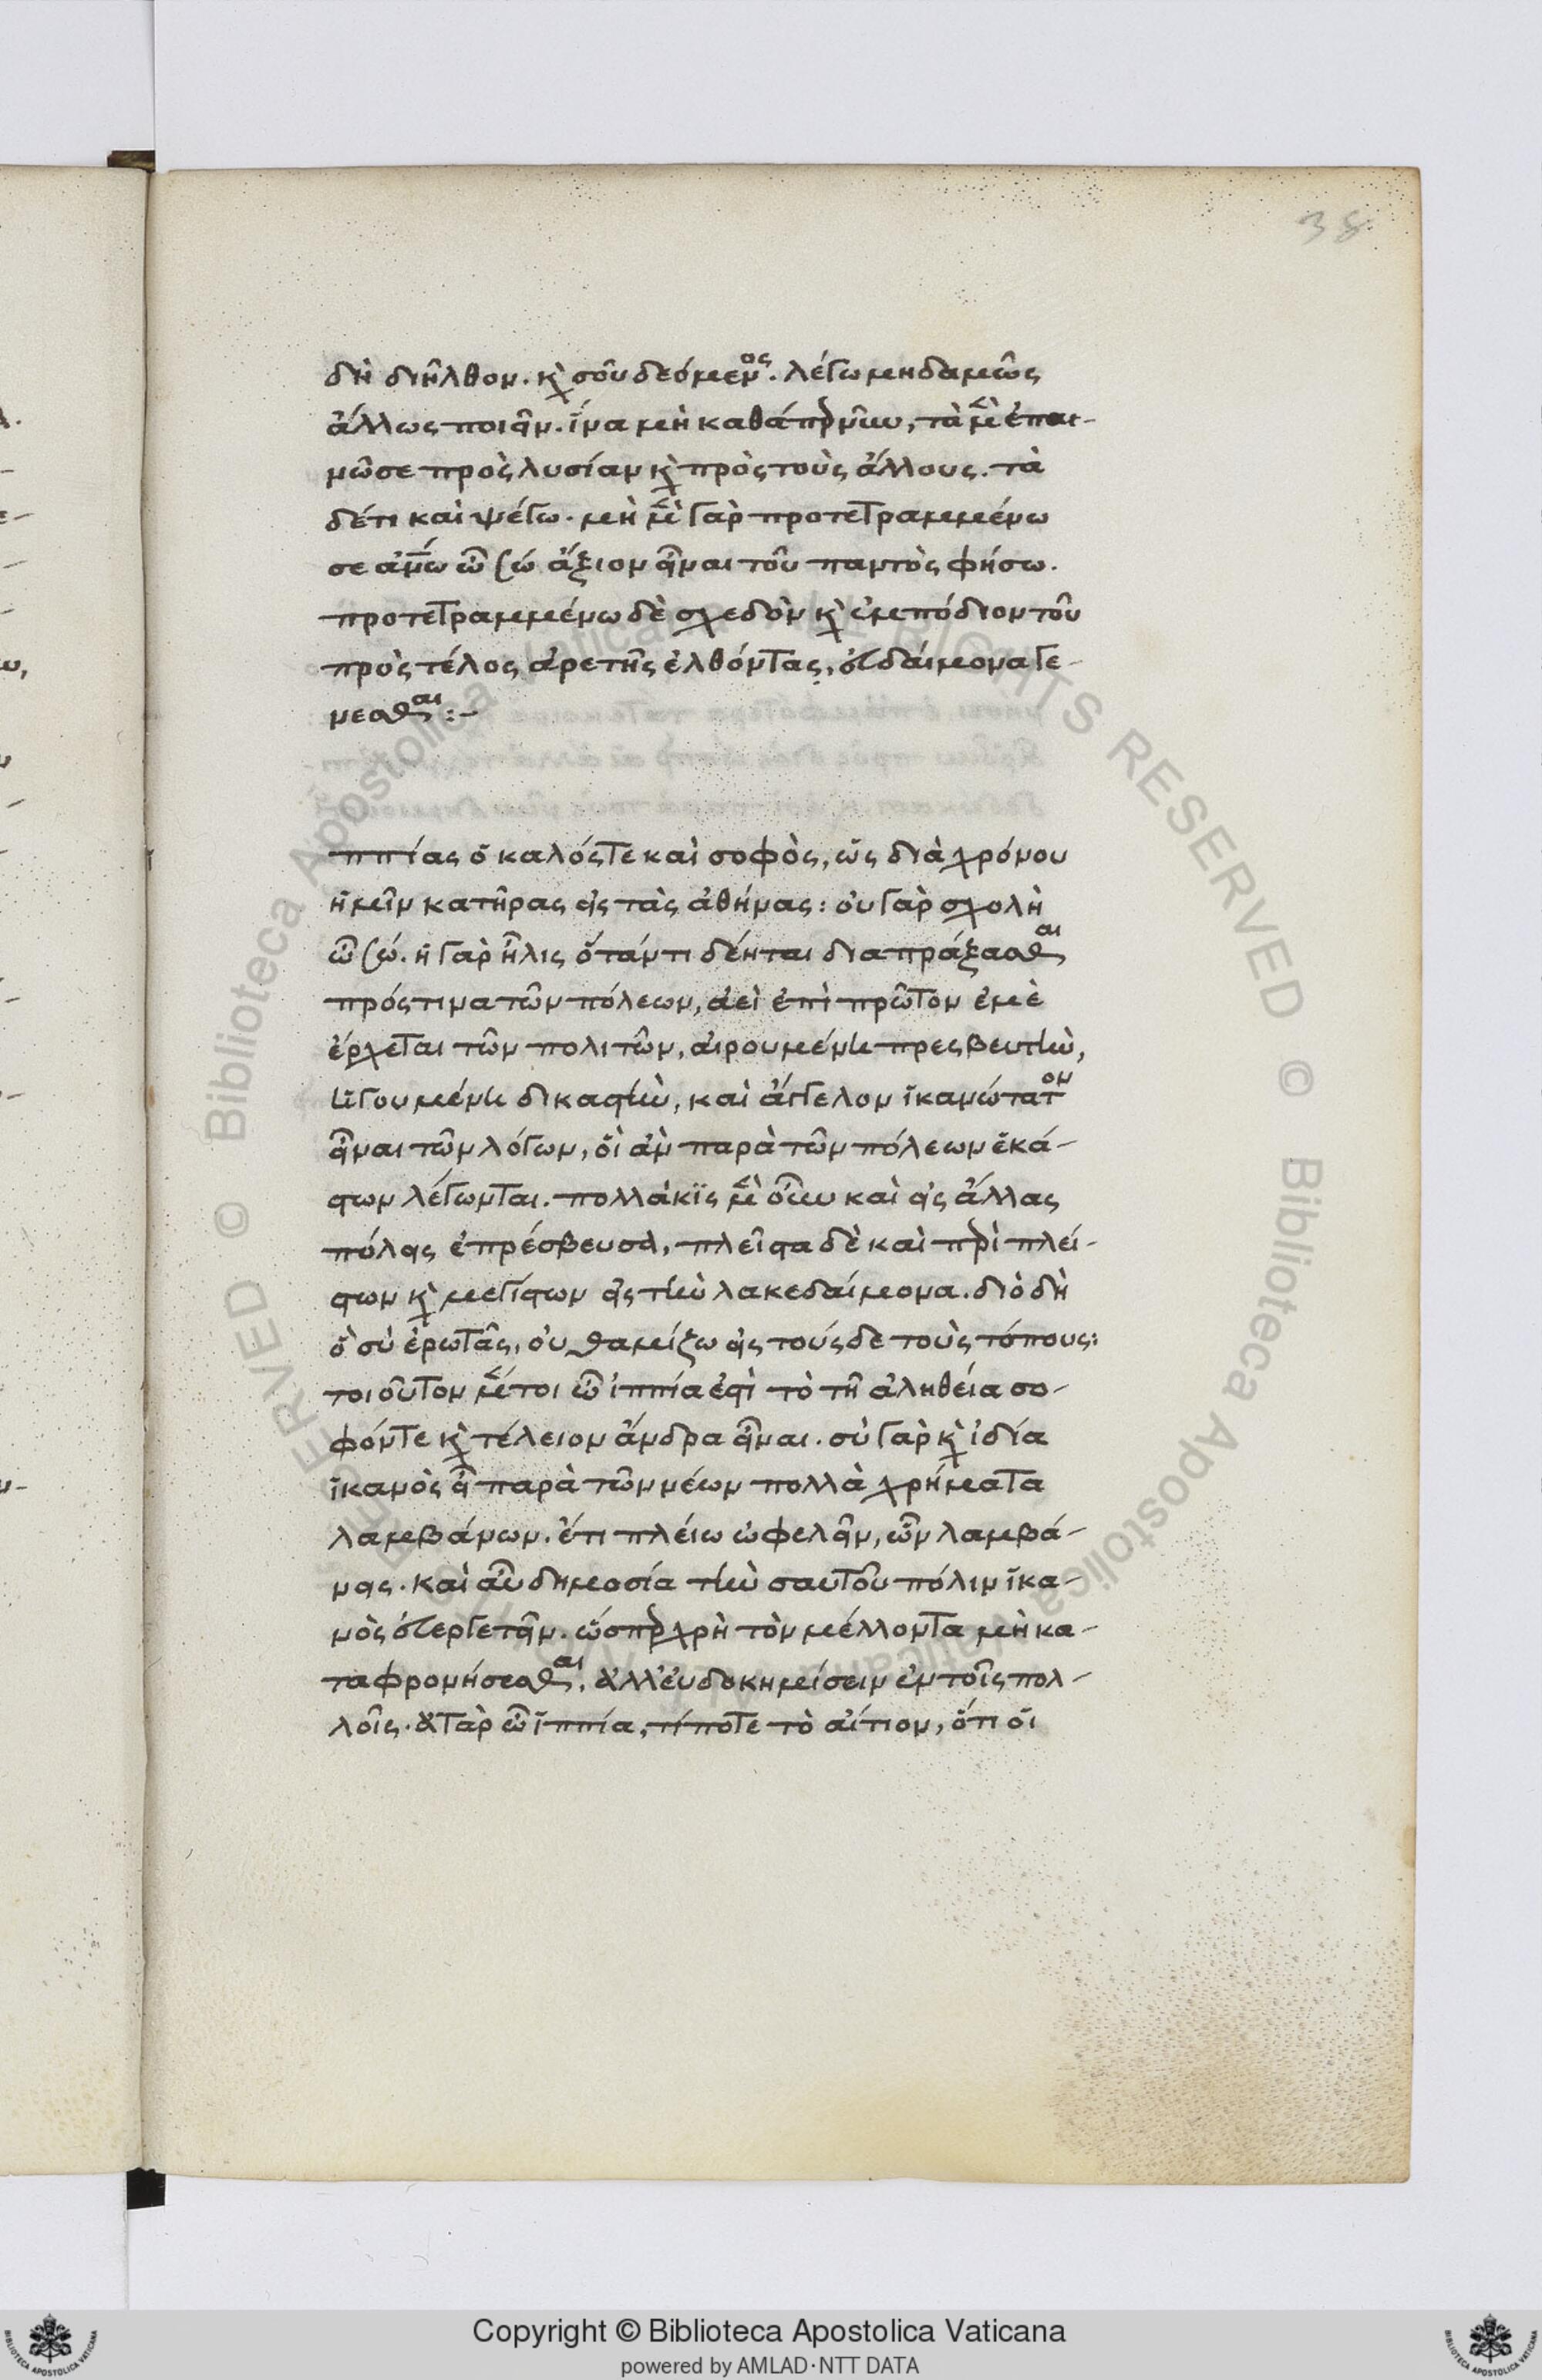 38
δὴ διῆλθον. κὶ σοῦ δεόμενος. λέγω μηδαμῶς
ἄλλως ποιεῖν. ἵνα μὴ καθάπερ νῦν, τὰ μὲν ἐπαι-
νῶσε πρὸς λυσίαν κὶ πρὸς τοὺς ἄλλους. τὰ
δέτι καὶ ψέγω. μὴ μὲν γὰρ προτετραμμένω
σε ἀνω ὦ Cώ ἄξιον εἶναι τοῦ παντὸς φήσω.
προτετραμμένω δὲ σχεδὸν κὶ ἐμπόδιον τοῦ
πρὸς τέλος ἀρετῆς ἐλθόντας, εὐδαίμονα γε-
νεσθαι :-
ππίας ὁ καλόςτε καὶ σοφὸς, ὡς διὰ χρόνου
ἡμῖν κατῆρας εἰς τὰς ἀθήνας: οὐ γὰρ σχολὴ
ὦ Cώ. ἡ γὰρ ἦλις ὅτάντι δέηται διαπράξασθαι
πρόςτινα τῶν πόλεων, ἀεὶ ἐπὶ πρῶτον ἐμὲ
ἔρχεται τῶν πολιτῶν, αἱρουμένη πρεσβευτὴν,
ἡγουμένη δικαστὴν, καὶ ἄγγελον ἱκανώτατον
εἶναι τῶν λόγων, οἳ ἂν παρὰ τῶν πόλεων ἑκά-
στων λέγωνται. πολλάκις μὲν οὖν καὶ εἰς ἄλλας
πόλεις ἐπρέσβευσα, πλεῖστα δὲ καὶ περὶ πλεί-
στων κὶ μεγίστων εἰς τὴν λακεδαίμονα. διὸ δὴ
ὃ σὺ ἐρωτᾶς, οὐ θαμίζω εἰς τούςδε τοὺς τόπους:
τοιοῦτον μέντοι ὦ ἱππία ἐστὶ τὸ τῆ ἀληθεία σο-
φόντε κὶ τέλειον ἄνδρα εἶναι. σὺ γὰρ κὶ ἰδία
ἱκανὸς εἶ παρὰ τῶν νέων πολλὰ χρήματα
λαμβάνων. ἔτι πλείω ὠφελεῖν, ὧν λαμβά-
νεις. καὶ αὖ δημοσία τὴν σαυτοῦ πόλιν ἱκα-
νὸς εὐεργετεῖν. ὥσπερ χρὴ τὸν μέλλοντα μὴ κα-
ταφρονήσεσθαι, ἀλλ' εὐδοκημείσειν ἐν τοῖς πολ-
λοῖς. ἀτὰρ ὦ ἱππία, τί ποτε τὸ αἴτιον, ὅτι οἱ
Copyright © Biblioteca Apostolica Vaticana
powered by AMLAD·NTT DATA